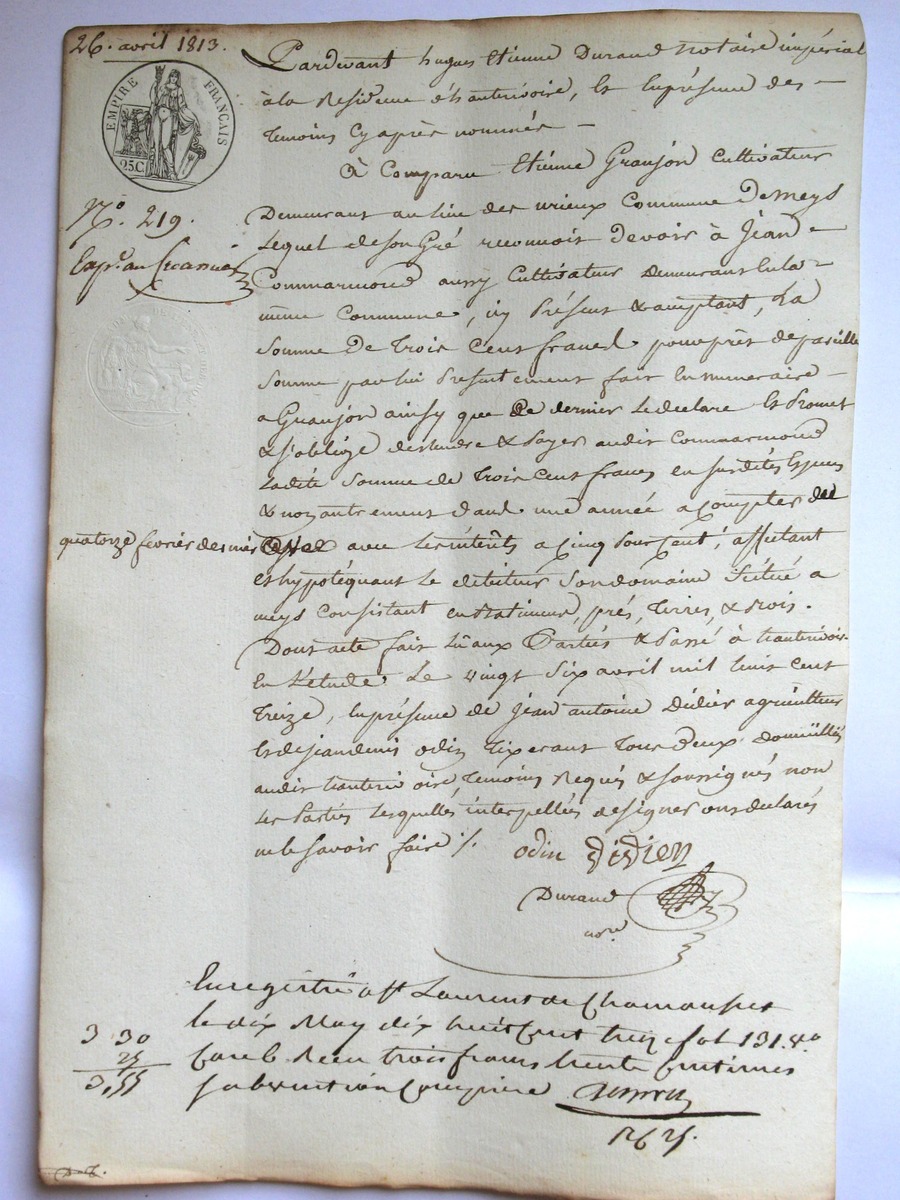 26. avril 1813.
EMPIRE FRANÇAIS
25C
N.o 219.
Pardevant hugues Etienne Durand Notaire impérial
à la Residence d'hauterivoire, Et En présence des
temoins Cy après nommés
à Comparu Etienne Granjon Cultivateur
Demeurant au lieu des vrieux Commune De meys
Lequel de son Gré reconnoit Devoir à Jean
Commarmond aussy Cultivateur Demeurant En la
même Commune, icy Présent & acceptant, La
Somme De trois Cent francs pour prêt de pareille
Somme par lui Presentement fait En numeraire
a Granjon ainsy que Ce dernier Le declare Et Promet
& s'oblige de Rendre & Payer audit Commarmond
Ladite Somme de trois Cent francs en susdites Especes
& non autrement dans une année a compter du
quatorze fevrier dernier avec Les intérêts a Cinq Pour Cent, affectant
et hypotéquant Le débiteur Son domaine Scitué a
meys Consistant en Batiment, prés, Terres, & Bois.
Dont acte fait Lû aux Parties & Passé à hauterivoire
En L'étude Le vingt Six avril mil huit Cent
Treize, En présence de Jean antoine Didier agriculteur
Et de jean denis odin Tixerant Tous Deux domiciliés
audit hauterivoire, Temoins Requis & soussignés non
Les Parties Lesquelles interpellées de signer ont déclarés
ne le Savoir faire ./.
odin Didier
Durand
no.re
Enregistré a St Laurent de Chamousset
le dix May dix huit Cent treize fol 131. v.o
Case 6 Recu trois francs trente Centimes
Subvention Comprise
3 30
25
3,55